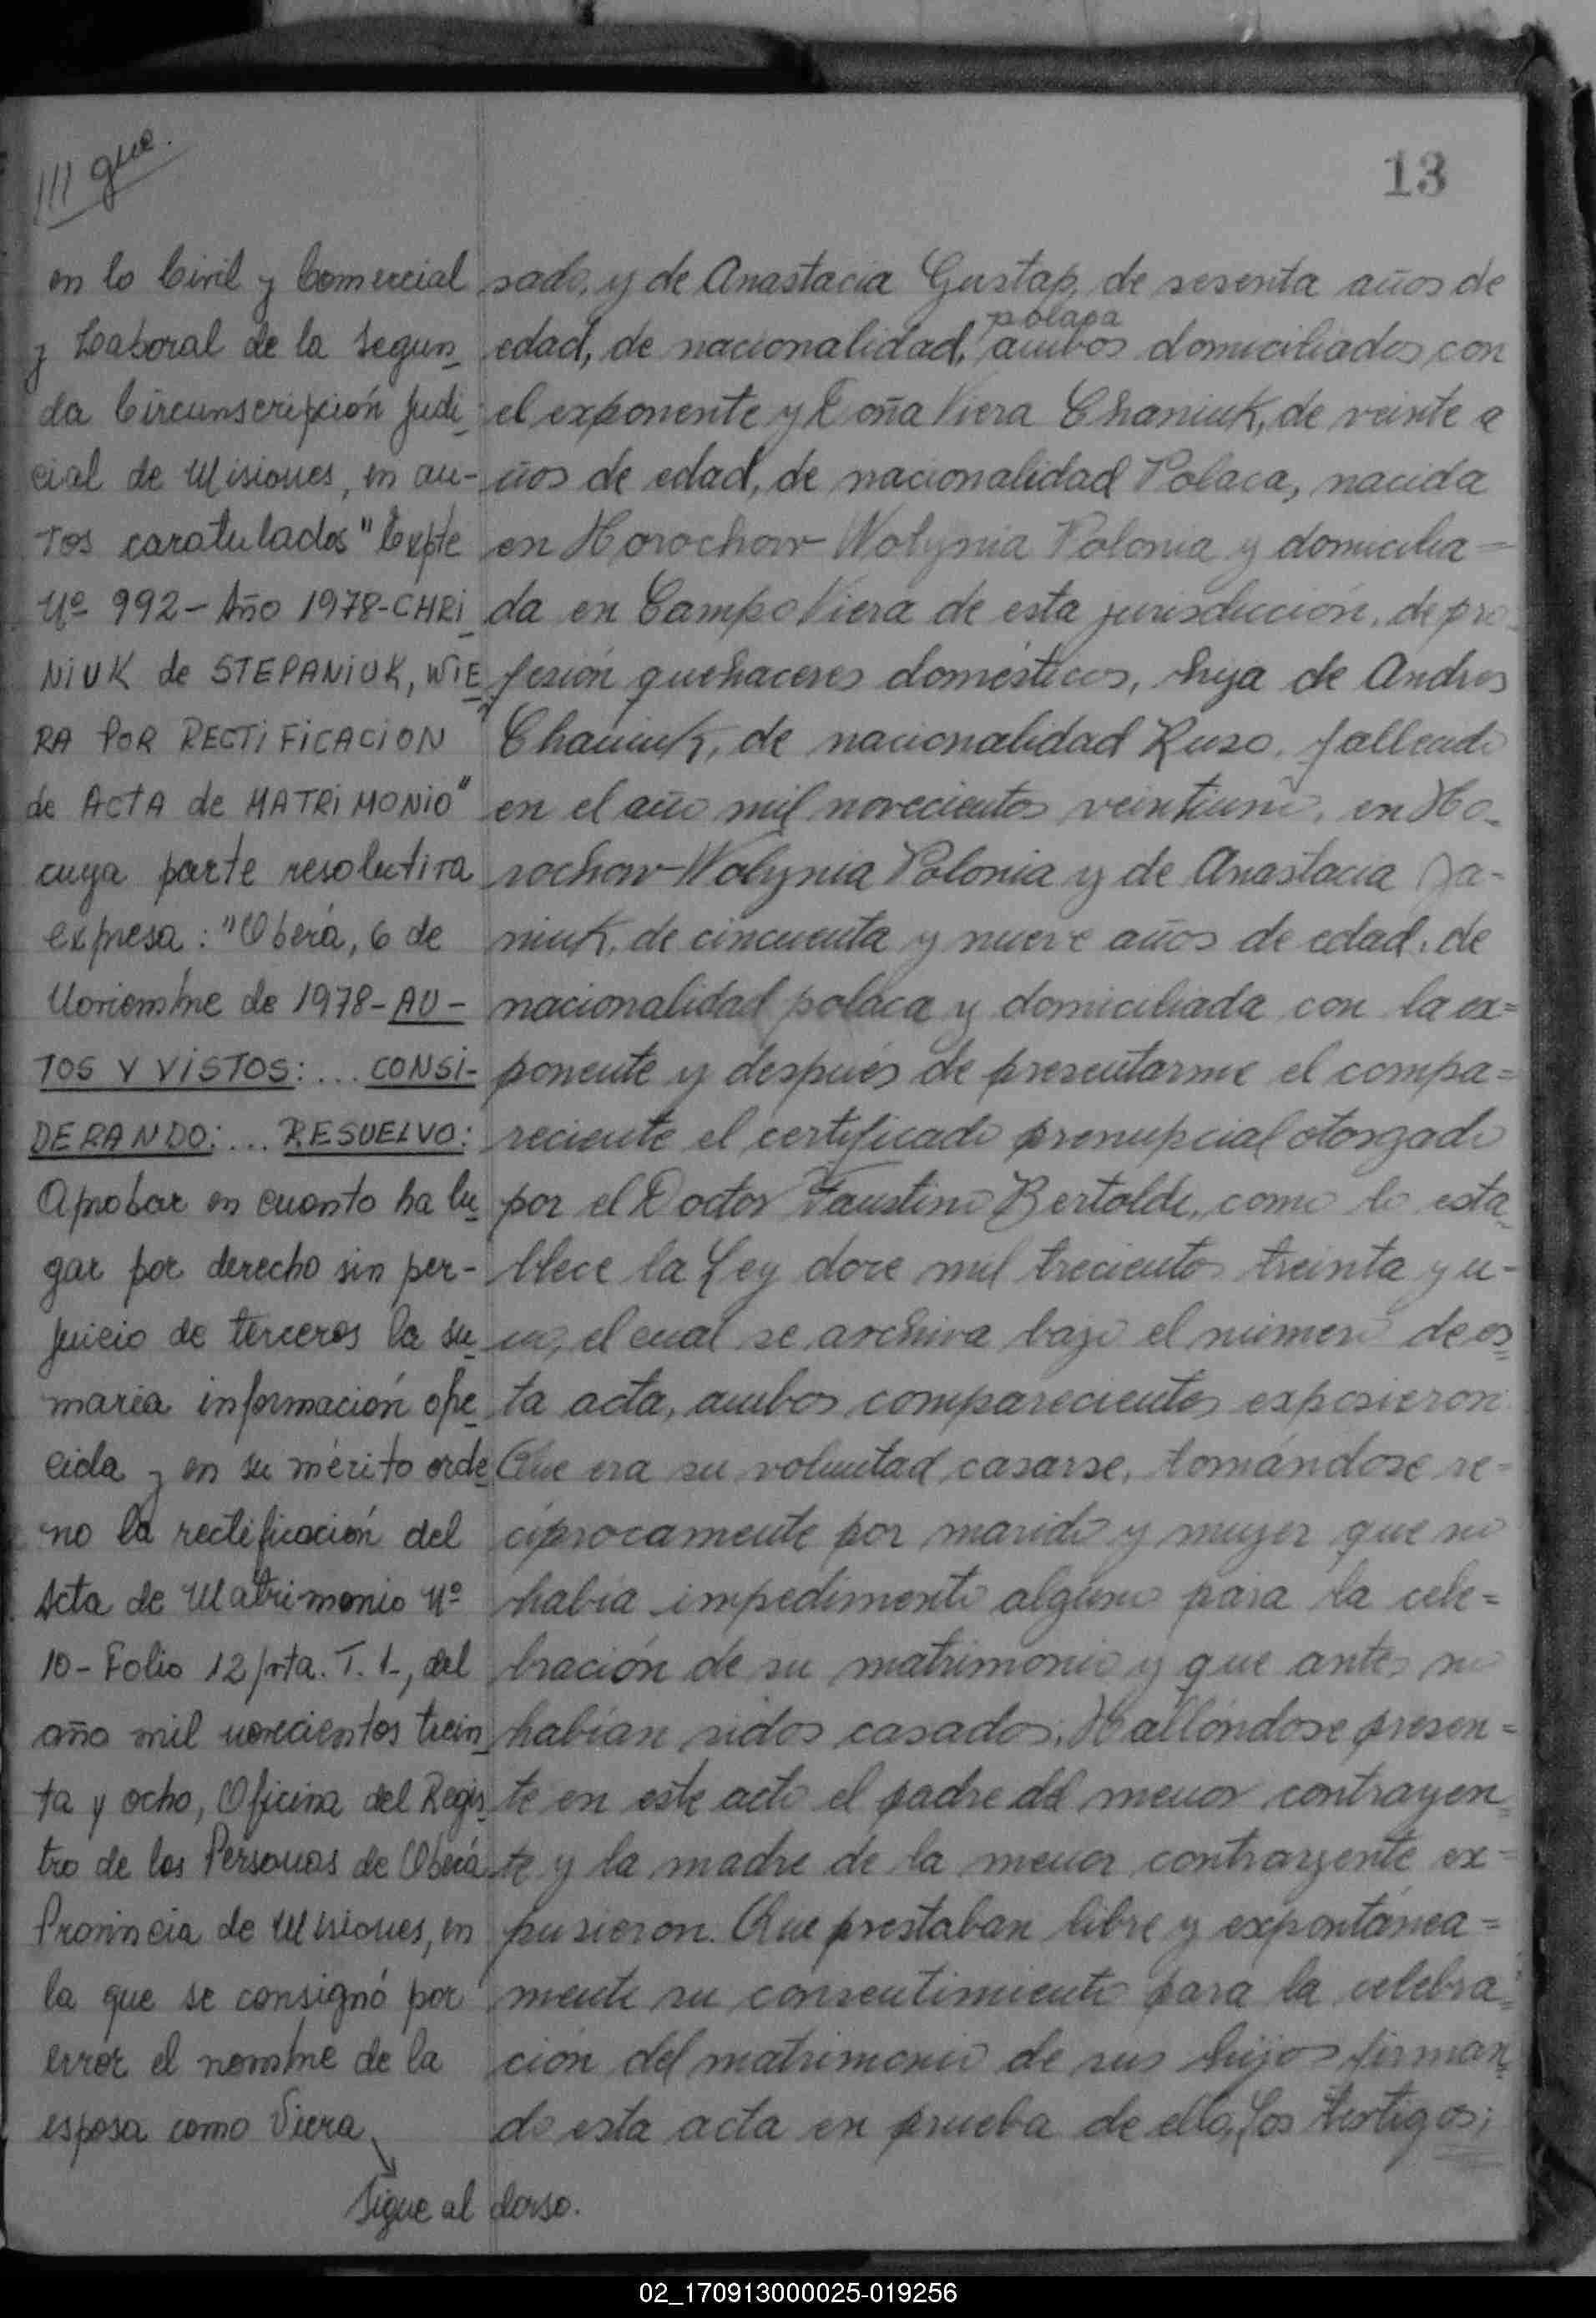 13
/// que.
en lo Civil y Comercial
y Laboral de la Segun-
da Circunscripción Judi-
cial de Misiones, en au-
tos caratulados "Expte
Nº 992 - Año 1978 - CHRI-
NIUK de STEPANIUK, WIE-
RA POR RECTIFICACION
de ACTA de MATRIMONIO"
cuya parte resolutiva
expresa: "Oberá, 6 de
Noviembre de 1978 - AU-
TOS Y VISTOS: ... CONSI-
DERANDO: ... RESUELVO:
Aprobar en cuanto ha lu-
gar por derecho sin per-
juicio de terceros la su-
maria información ofre-
cida y en su mérito orde-
no la rectificación del
Acta de Matrimonio Nº
10 - Folio 12/vta. T. 1-, del
año mil novecientos trein-
ta y ocho, Oficina del Regis-
tro de las Personas de Oberá
Provincia de Misiones, en
la que se consignó por
error el nombre de la
esposa como Viera
Sigue al dorso.
sado, y de Anastacia Gustap, de sesenta años de
polaca
edad, de nacionalidad, ambos domiciliados con
el exponente y Doña Viera Chaniuk, de veinte a
ños de edad, de nacionalidad Polaca, nacida
en Horochow Wolynia Polonia y domicilia=
da en Campo Viera de esta jurisdicción, de pro-
fesión quehaceres domésticos, hija de Andres
Chaniuk, de nacionalidad Ruso, fallecido
en el año mil novecientos veintiuno, en Ho-
rochow-Wolynia Polonia y de Anastacia Ja-
niuk, de cincuenta y nueve años de edad, de
nacionalidad polaca y domiciliada con la ex=
ponente y después de presentarme el compa=
reciente el certificado prenupcial otorgado
por el Doctor Faustino Bertolde, como lo esta=
blece la Ley doce mil trecientos treinta y u-
no, el cual se archiva bajo el número de es=
ta acta, ambos comparecientes exposieron:
Que era su voluntad casarse, tomándose re=
ciprocamente por marido y mujer que no
había impedimento alguno para la cele=
bración de su matrimonio y que antes no
habían sidos casados. Hallóndose presen=
te en este acto el padre del menor contrayen=
te y la madre de la menor contrayente ex=
pusieron. Que prestaban libre y expontánea=
mente su consentimiento para la celebra=
ción del matrimonio de sus hijos firman=
do esta acta en prueba de ello, los testigos;
02_170913000025-019256